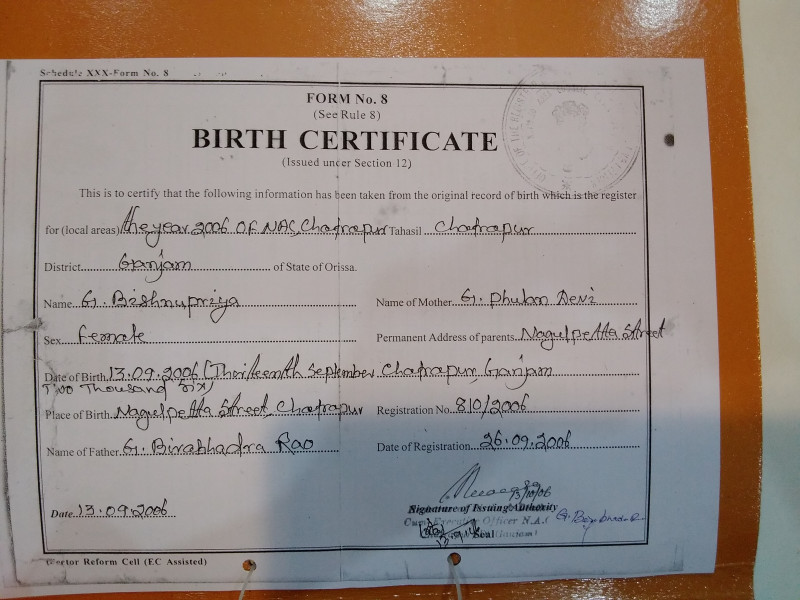 Schedule XXX-Form No. 8
FORM No. 8
(See Rule 8)
BIRTH CERTIFICATE
(Issued under Section 12)
This is to certify that the following information has been taken from the original record of birth which is the register
for (local areas) the year 2006 OF NAC, Chatrapur Tahasil Chatrapur
District Ganjam of State of Orissa.
Name G. Bishnupriya Name of Mother G. Phulan Devi
Sex Female Permanent Address of parents Nagulpetta Street
Date of Birth 13.09.2006 (Thirteenth September Chatrapur, Ganjam
Two Thousand Six)
Place of Birth Nagulpetta Street, Chatrapur Registration No. 810/2006
Name of Father G. Birabhadra Rao Date of Registration 26.09.2006
13/10/06
Date 13.09.2006 Signature of Issuing Authority
Executive Officer N.A.
Seal
Sector Reform Cell (EC Assisted)